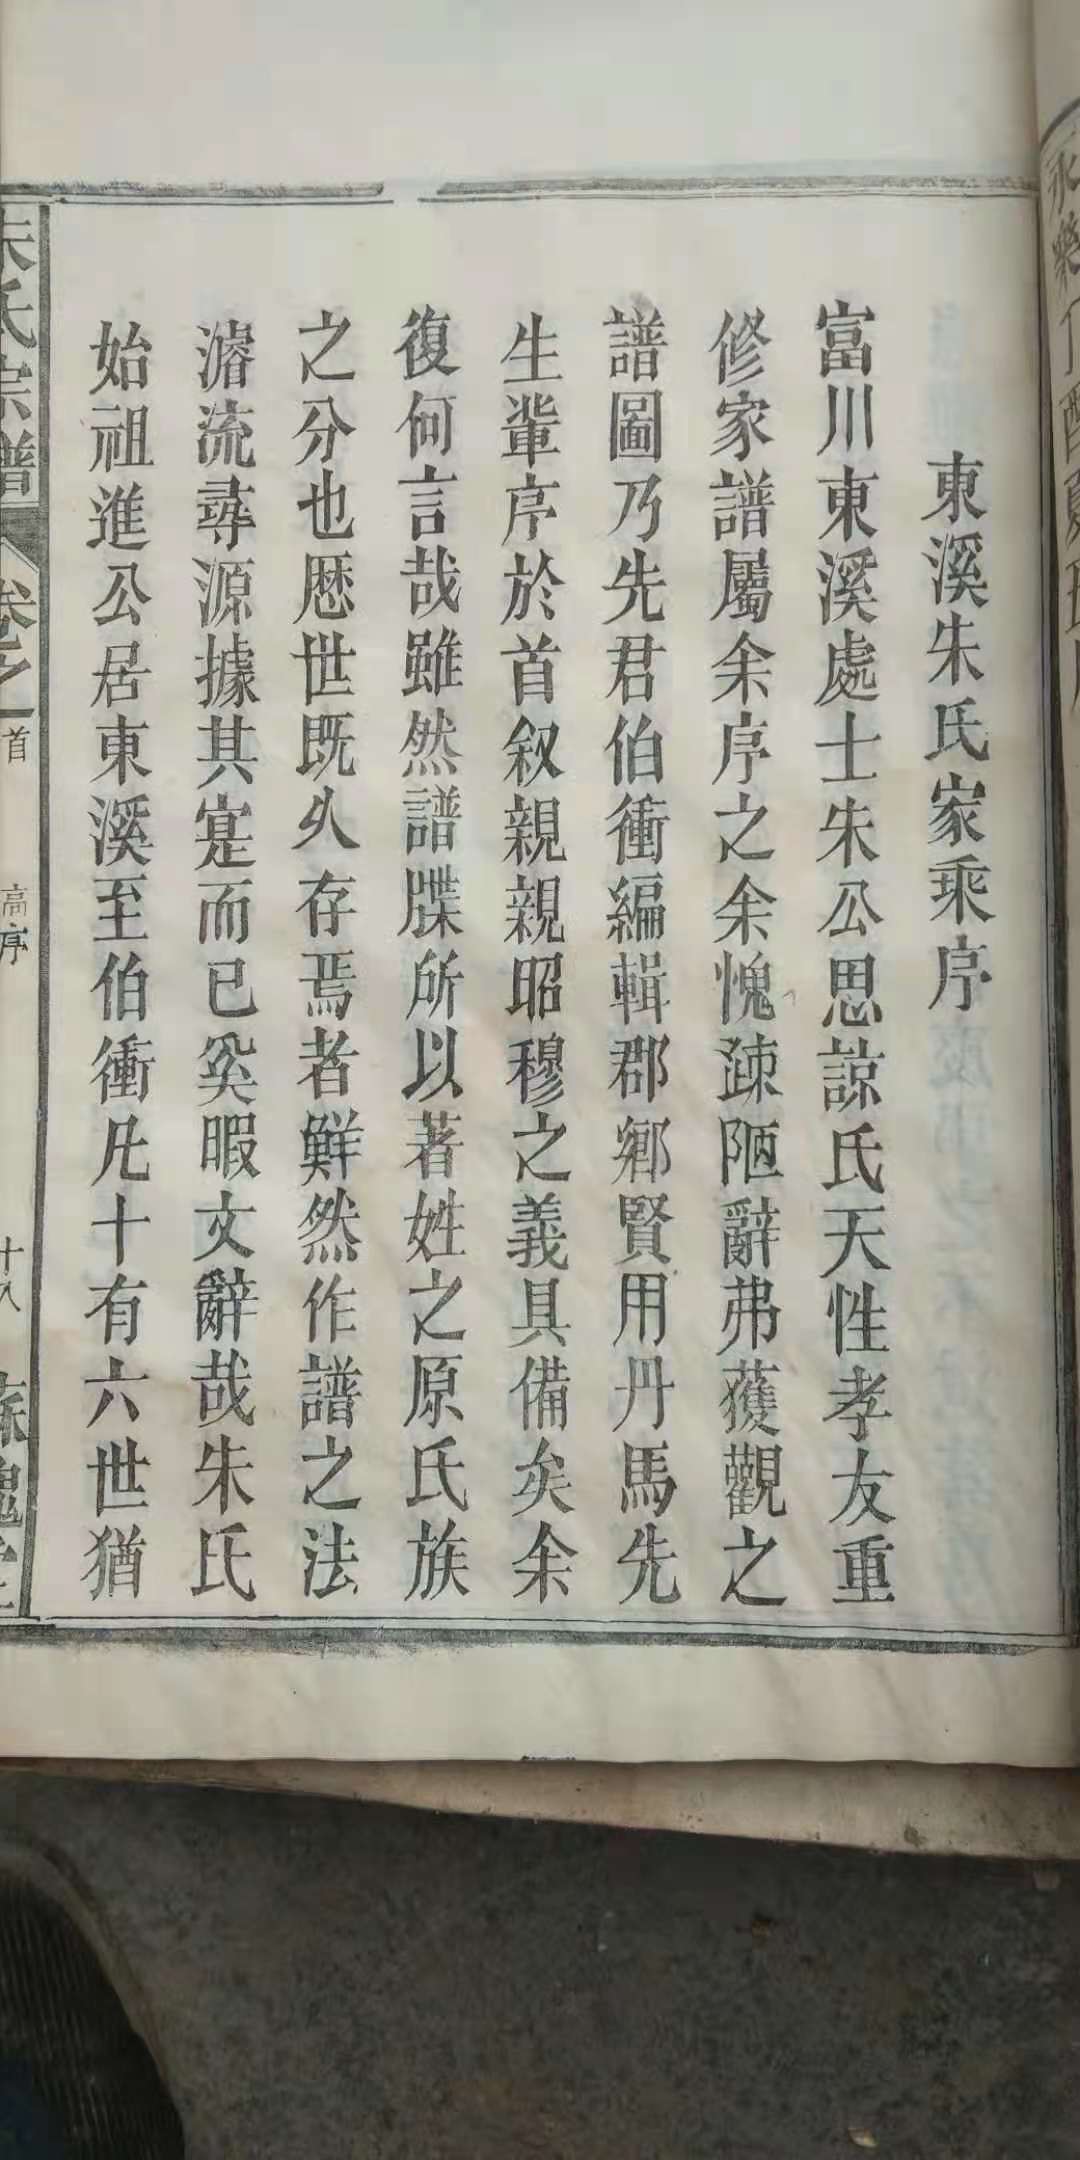 永樂丁酉夏
東溪朱氏家乘序
富川東溪處士朱公思諒氏天性孝友重
修家譜屬余序之余愧疎陋辭弗獲觀之
譜圖乃先君伯衝編輯郡鄉賢用丹馬先
生輩序於首叙親親昭穆之義具備矣余
復何言哉雖然譜牒所以著姓之原氏族
之分也歷世既久存焉者鮮然作譜之法
濬流尋源據其寔而已奚暇文辭哉朱氏
始祖進公居東溪至伯衝凡十有六世猶
朱氏宗譜 卷之首 高序 十八